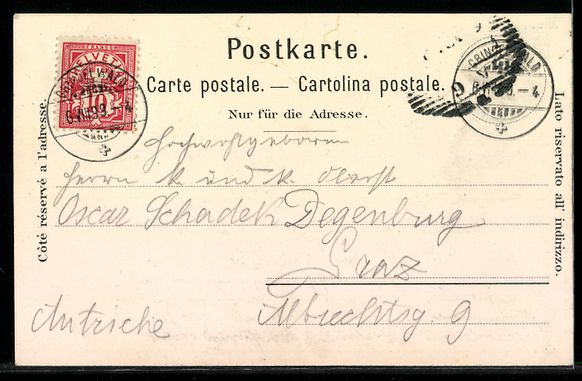 Postkarte.
Carte postale. — Cartolina postale.
Nur für die Adresse.
Côté réservé a l'adresse.
Lato riservato all' indirizzo.
FRANCO
HELVETIA
10
GRINDELWALD
6.XII.98.-4
GRINDELWALD
6.XII.98.-4
9
Hochwohlgeboren
Herrn k und k. Oberst
Oscar Schadek Degenburg
Graz
Albrechtsg. 9
Autriche